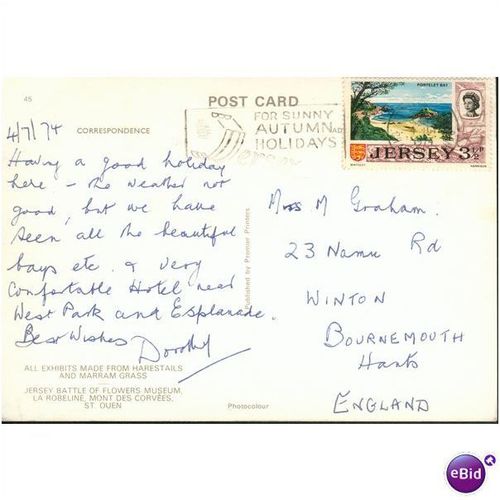 45
POST CARD
FOR SUNNY
AUTUMN
HOLIDAYS
PORTELET BAY
JERSEY 3½P
4/7/74
CORRESPONDENCE
Having a good holiday
here - the weather not
good, but we have
seen all the beautiful
bays etc. & very
Comfortable Hotel near
West Park and Esplanade.
Best Wishes
Dorothy
ALL EXHIBITS MADE FROM HARESTAILS
AND MARRAM GRASS
JERSEY BATTLE OF FLOWERS MUSEUM,
LA ROBELINE, MONT DES CORVÉES,
ST. OUEN
Published by Premier Printers
Photocolour
Miss M Graham.
23 Namu Rd
WINTON
BOURNEMOUTH
Hants
ENGLAND
eBid